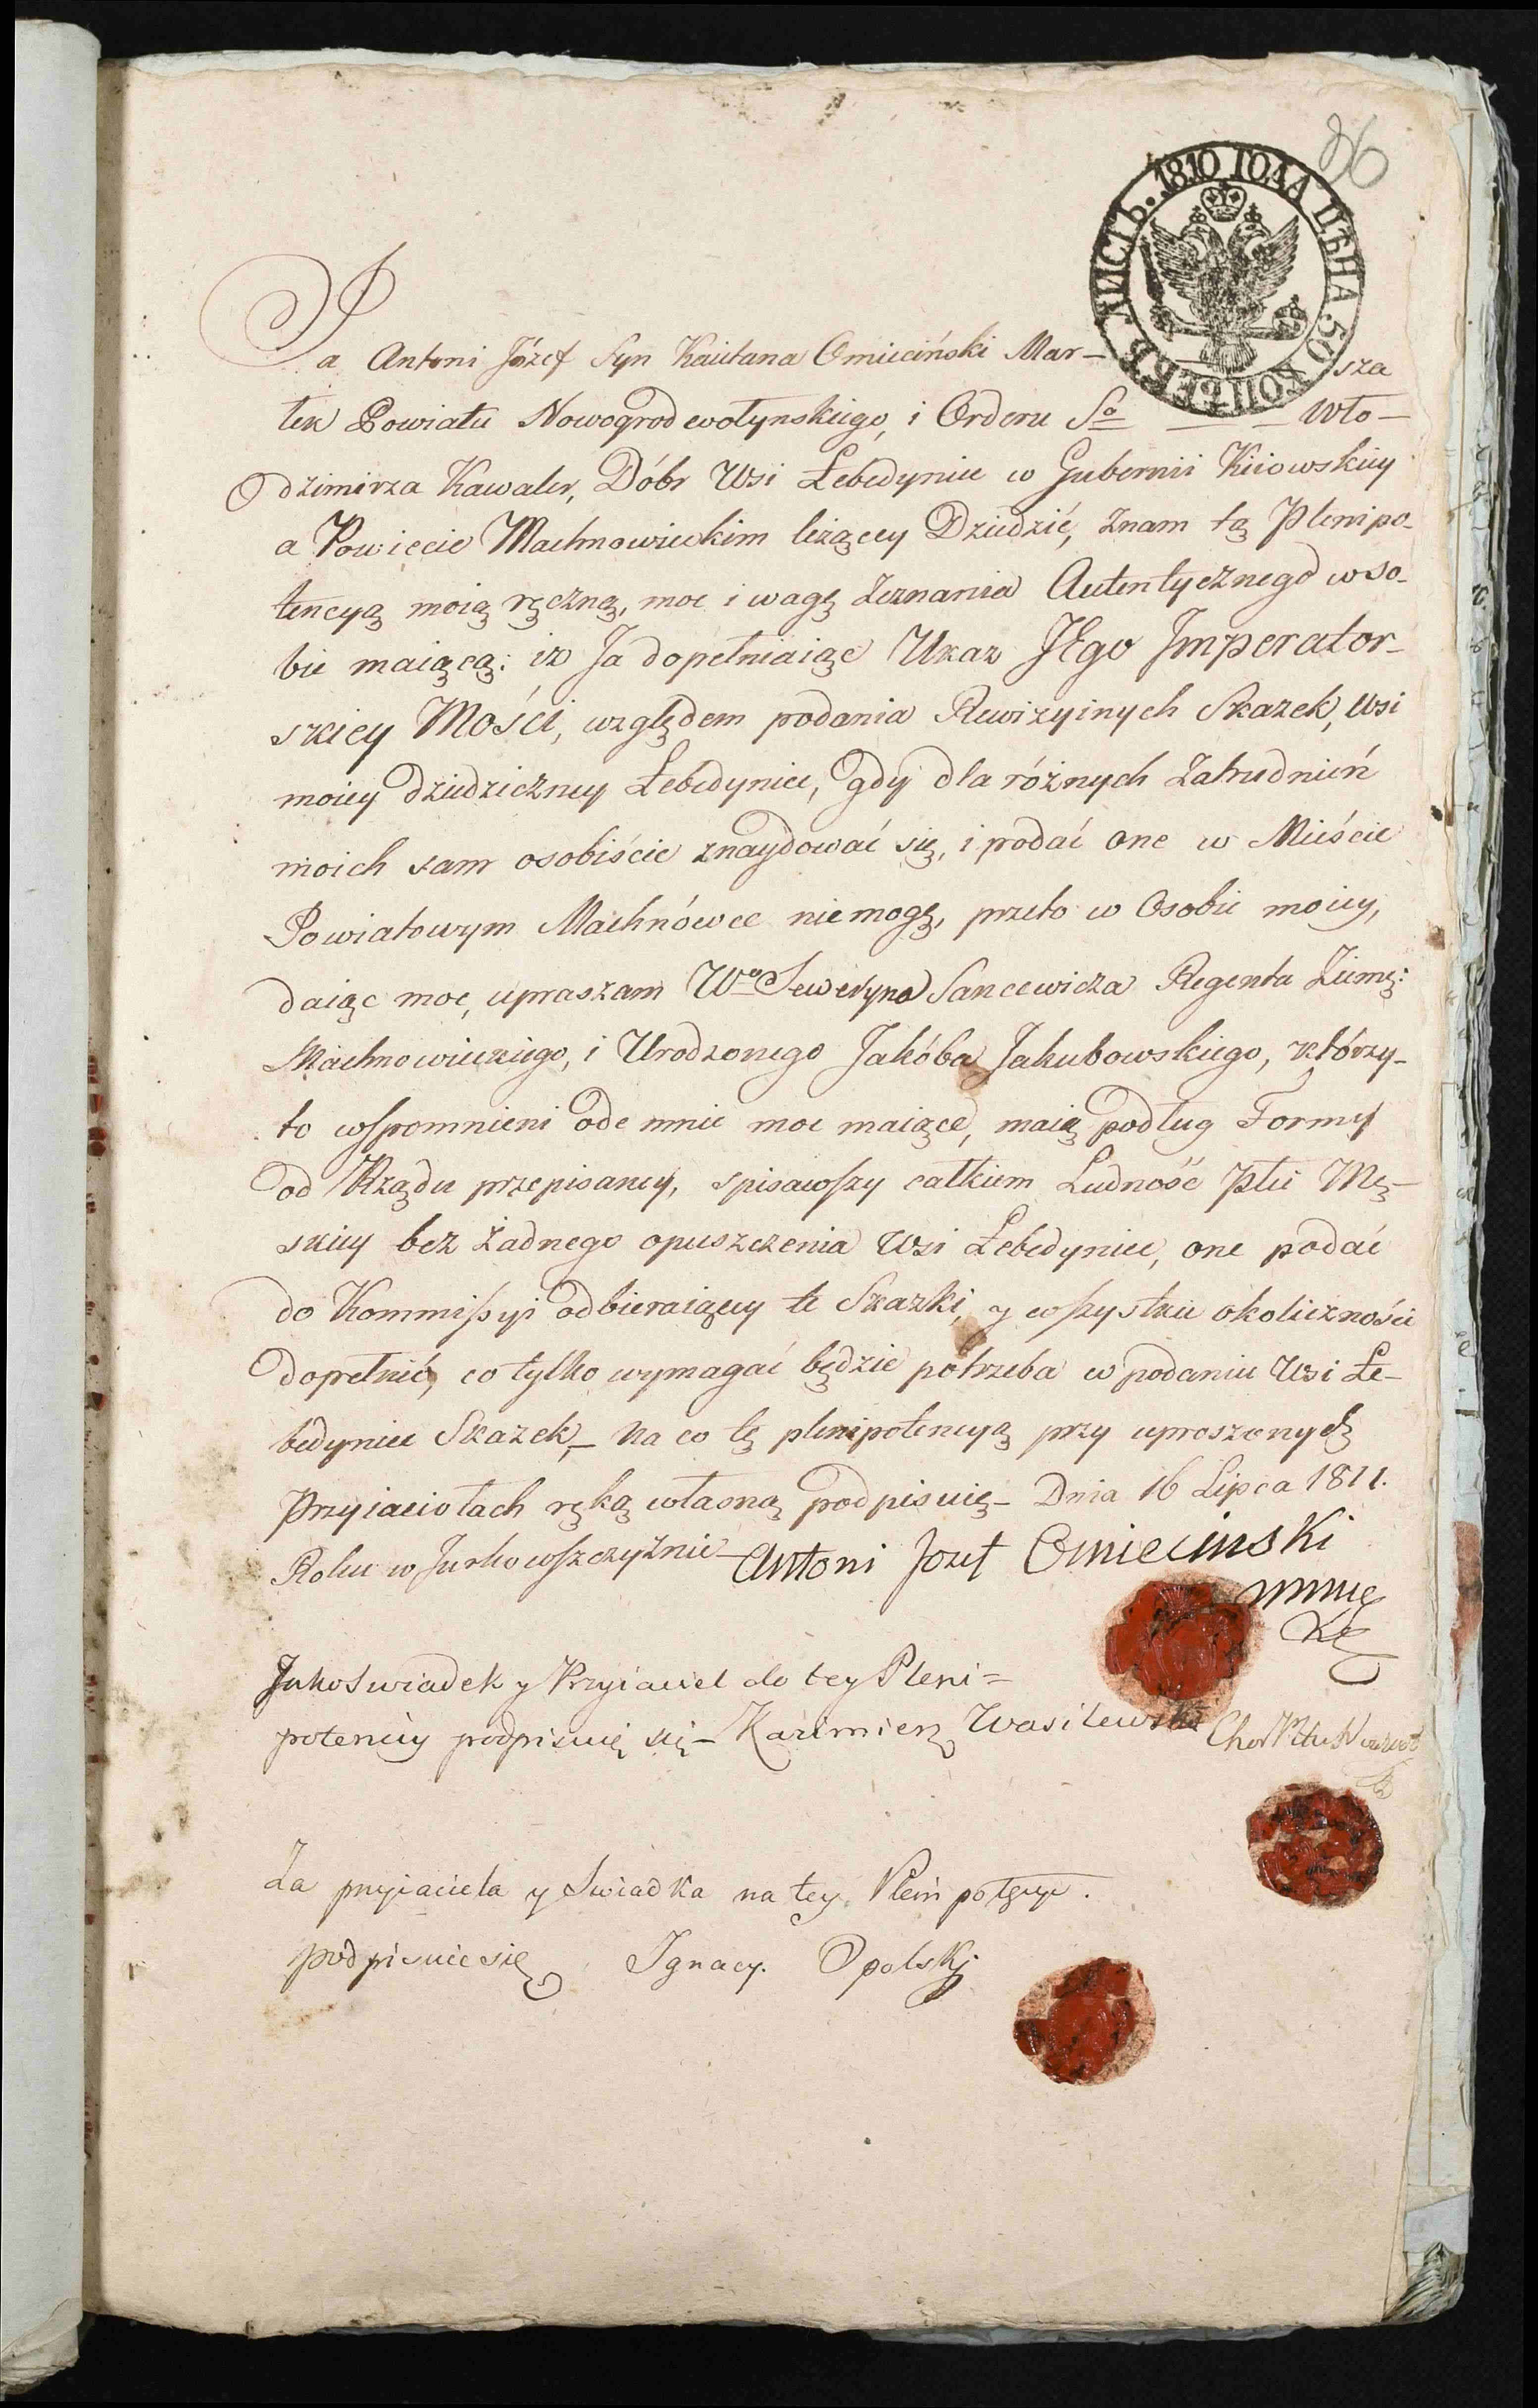 86
ЛИСТЪ. 1810 ГОДА ЦѢНА. 50 КОПѢЕКЪ.
Ja Antoni Józef Syn Kaietana Omieciński Mar- sza
łek Powiatu Nowogrodwołynskiego, i Orderu So Wło-
dzimirza Kawaler, Dóbr Wsi Łebedyniec w Gubernii Kiiowskiey
a Powiecie Machnowieckim leżącey Dziedzić, znam tą Plenipo-
tencyą moią ręczną, moc i wagę Zeznania Autentycznego w so-
bie maiącą: iż Ja dopełniaiąc Ukaz JEgo Jmperator-
skiey Mości, względem podania Rewizyinych Skazek, Wsi
moiey dziedziczney Łebedyniec, gdy dla różnych Zatrudnień
moich sam osobiście znaydować się, i podać one w Mieście
Powiatowym Machnówce niemogę, przeto w Osobie moiey,
daiąc moc, upraszam Wo Seweryna Sancewicza Regenta Ziems:
Machnowieckiego, i Urodzonego Jakóba Jakubowskiego, którzy-
to wspomnieni ode mnie moc maiące, maią podług Formy
od Rządu przepisaney, spisawszy całkiem Ludność płci Mę-
skiey bez żadnego opuszczenia Wsi Łebedyniec, one podać
do Kommissyi odbieraiącey te Skazki, y wszystkie okoliczności
dopełnić, co tylko wymagać będzie potrzeba w podaniu Wsi Łe-
bedyniec Skazek,- Na co tę plenipotencyą przy uproszonych
Przyiaciołach ręką własną podpisuię- Dnia 16 Lipca 1811.
Roku w Jurkowszczyźnie- Antoni Jozef Omiecinski
Jako Swiadek y Przyiaciel do tey Pleni=
potencyi podpisuię się- Kazimierz Wasilewski Chor Pttu
Za przyiaciela y Swiadka na tey Plenipotęcyi.
podpisuie się Ignacy. Opolski